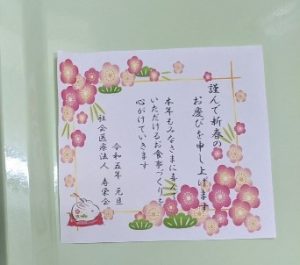 謹んで新春の
お慶びを申し上げます
本年もみなさまに喜
いただけるお食事づくりを
心がけていきます
令和五年 元旦
社会医療法人 寿栄会